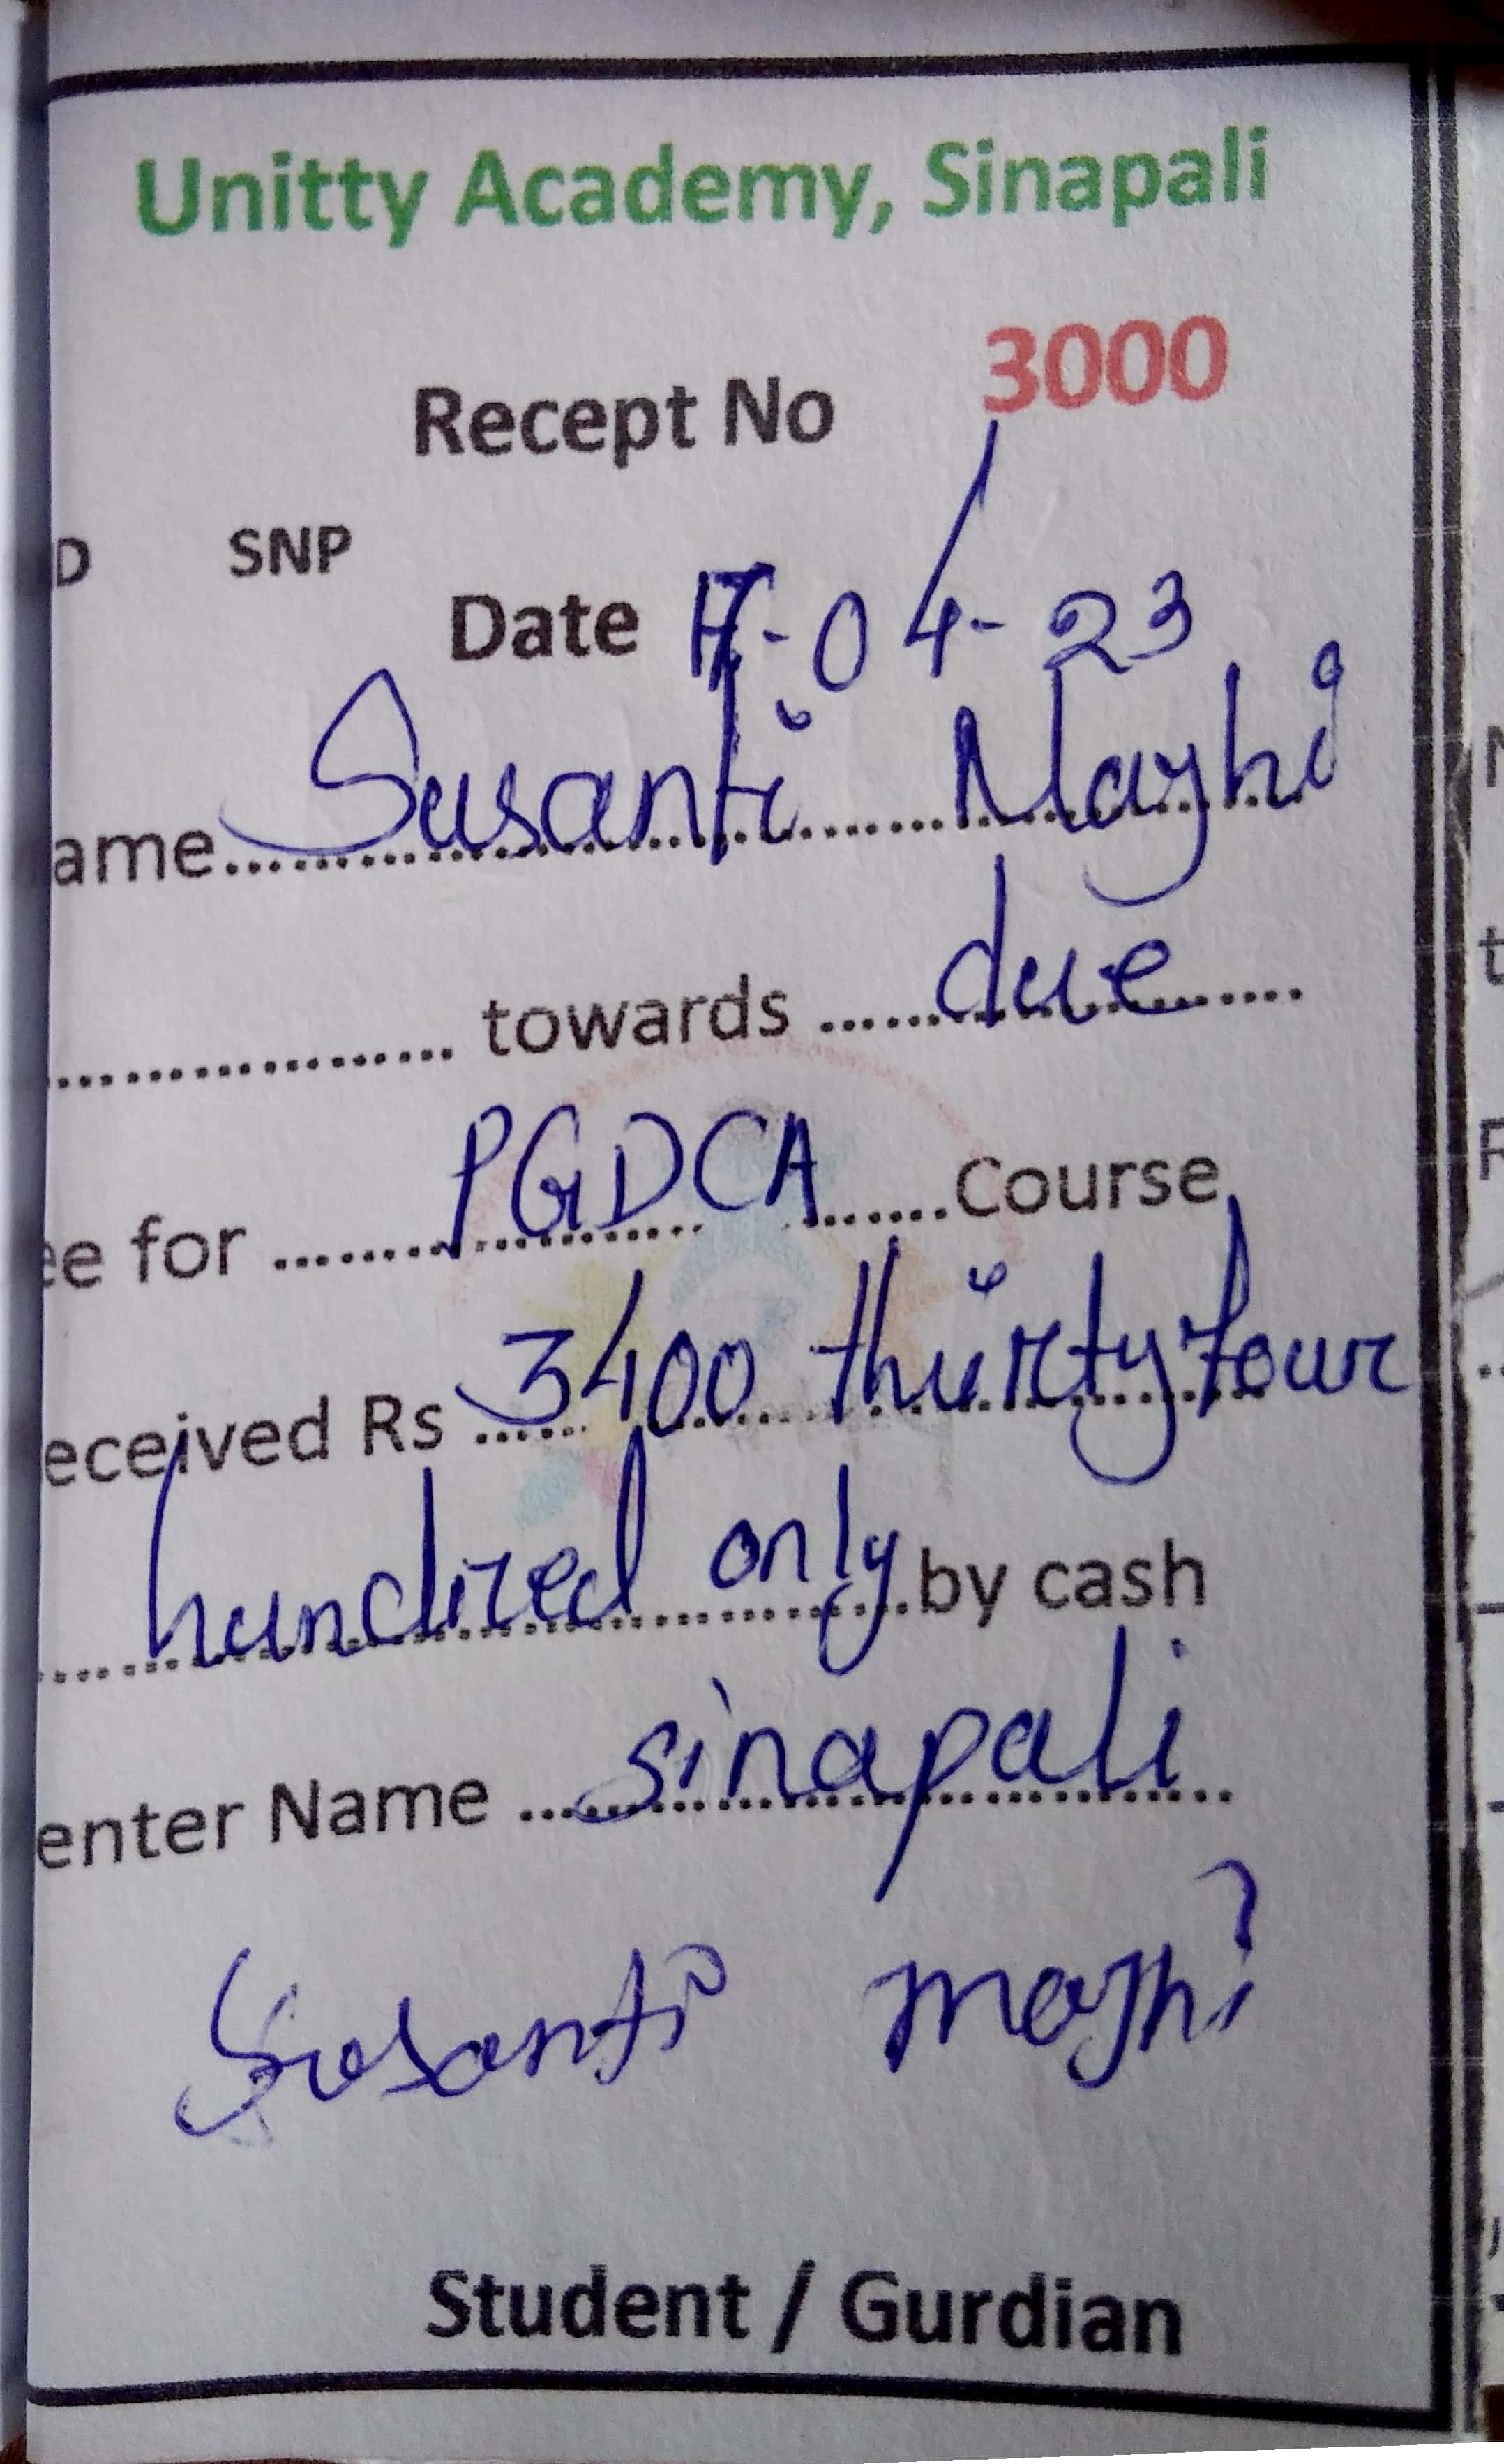 Unitty Academy, Sinapali
Recept No 3000
D SNP
Date 17-04-23
ame Susanti Majhi
towards due
ee for PGDCA Course
eceived Rs 3400 thirty four
hundred only by cash
enter Name sinapali
Susanti majhi
Student / Gurdian